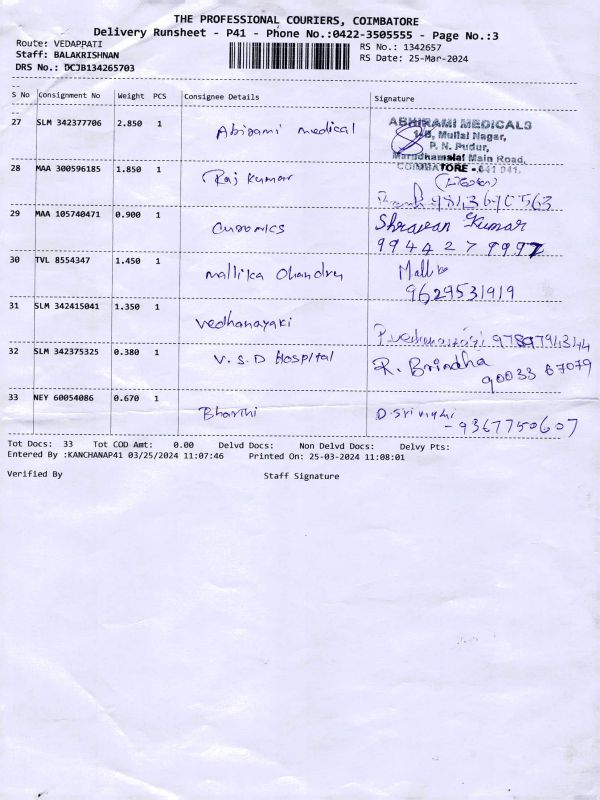 THE PROFESSIONAL COURIERS, COIMBATORE
Delivery Runsheet - P41 - Phone No.:0422-3505555 - Page No.:3
Route: VEDAPPATI
RS No.: 1342657
Staff: BALAKRISHNAN
RS Date: 25-Mar-2024
DRS No.: DCJB134265703
S No Consignment No Weight PCS Consignee Details Signature
27 SLM 342377706 2.850 1 Abirami medical
ABHIRAMI MEDICALS
Mullai Nagar,
P. N. Pudur,
Marudhamalai Main Road,
COIMBATORE - 641 041.
28 MAA 300596185 1.850 1 Raj Kumar
29 MAA 105740471 0.900 1
Shravan Kumar
99442 79997
30 TVL 8554347 1.450 1 mallika
9629531919
31 SLM 342415041 1.350 1 vedhanayaki
32 SLM 342375325 0.380 1 V.S.D Hospital
R. Brindha
90033 67079
33 NEY 60054086 0.670 1
-9367750607
Tot Docs: 33 Tot COD Amt: 0.00 Delvd Docs: Non Delvd Docs: Delvy Pts:
Entered By :KANCHANAP41 03/25/2024 11:07:46 Printed On: 25-03-2024 11:08:01
Verified By Staff Signature